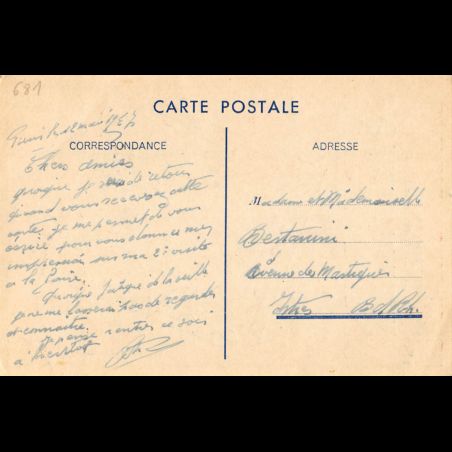 681
CARTE POSTALE
CORRESPONDANCE
ADRESSE
Paris le 12 mai 1937
Chers amis
quoique je de retour
quand vous recevrez cette
carte je me permet de vous
écrire pour vous donner mes
impressions sur ma 2e visite
à la Foire.
quoique fatigué de la veille
de regarder
et connaître.
Je pense rentrer ce soir
à bientôt
Madame et Mademoiselle
Bertanini
Avenue des Martigues
Istres B d Rh.